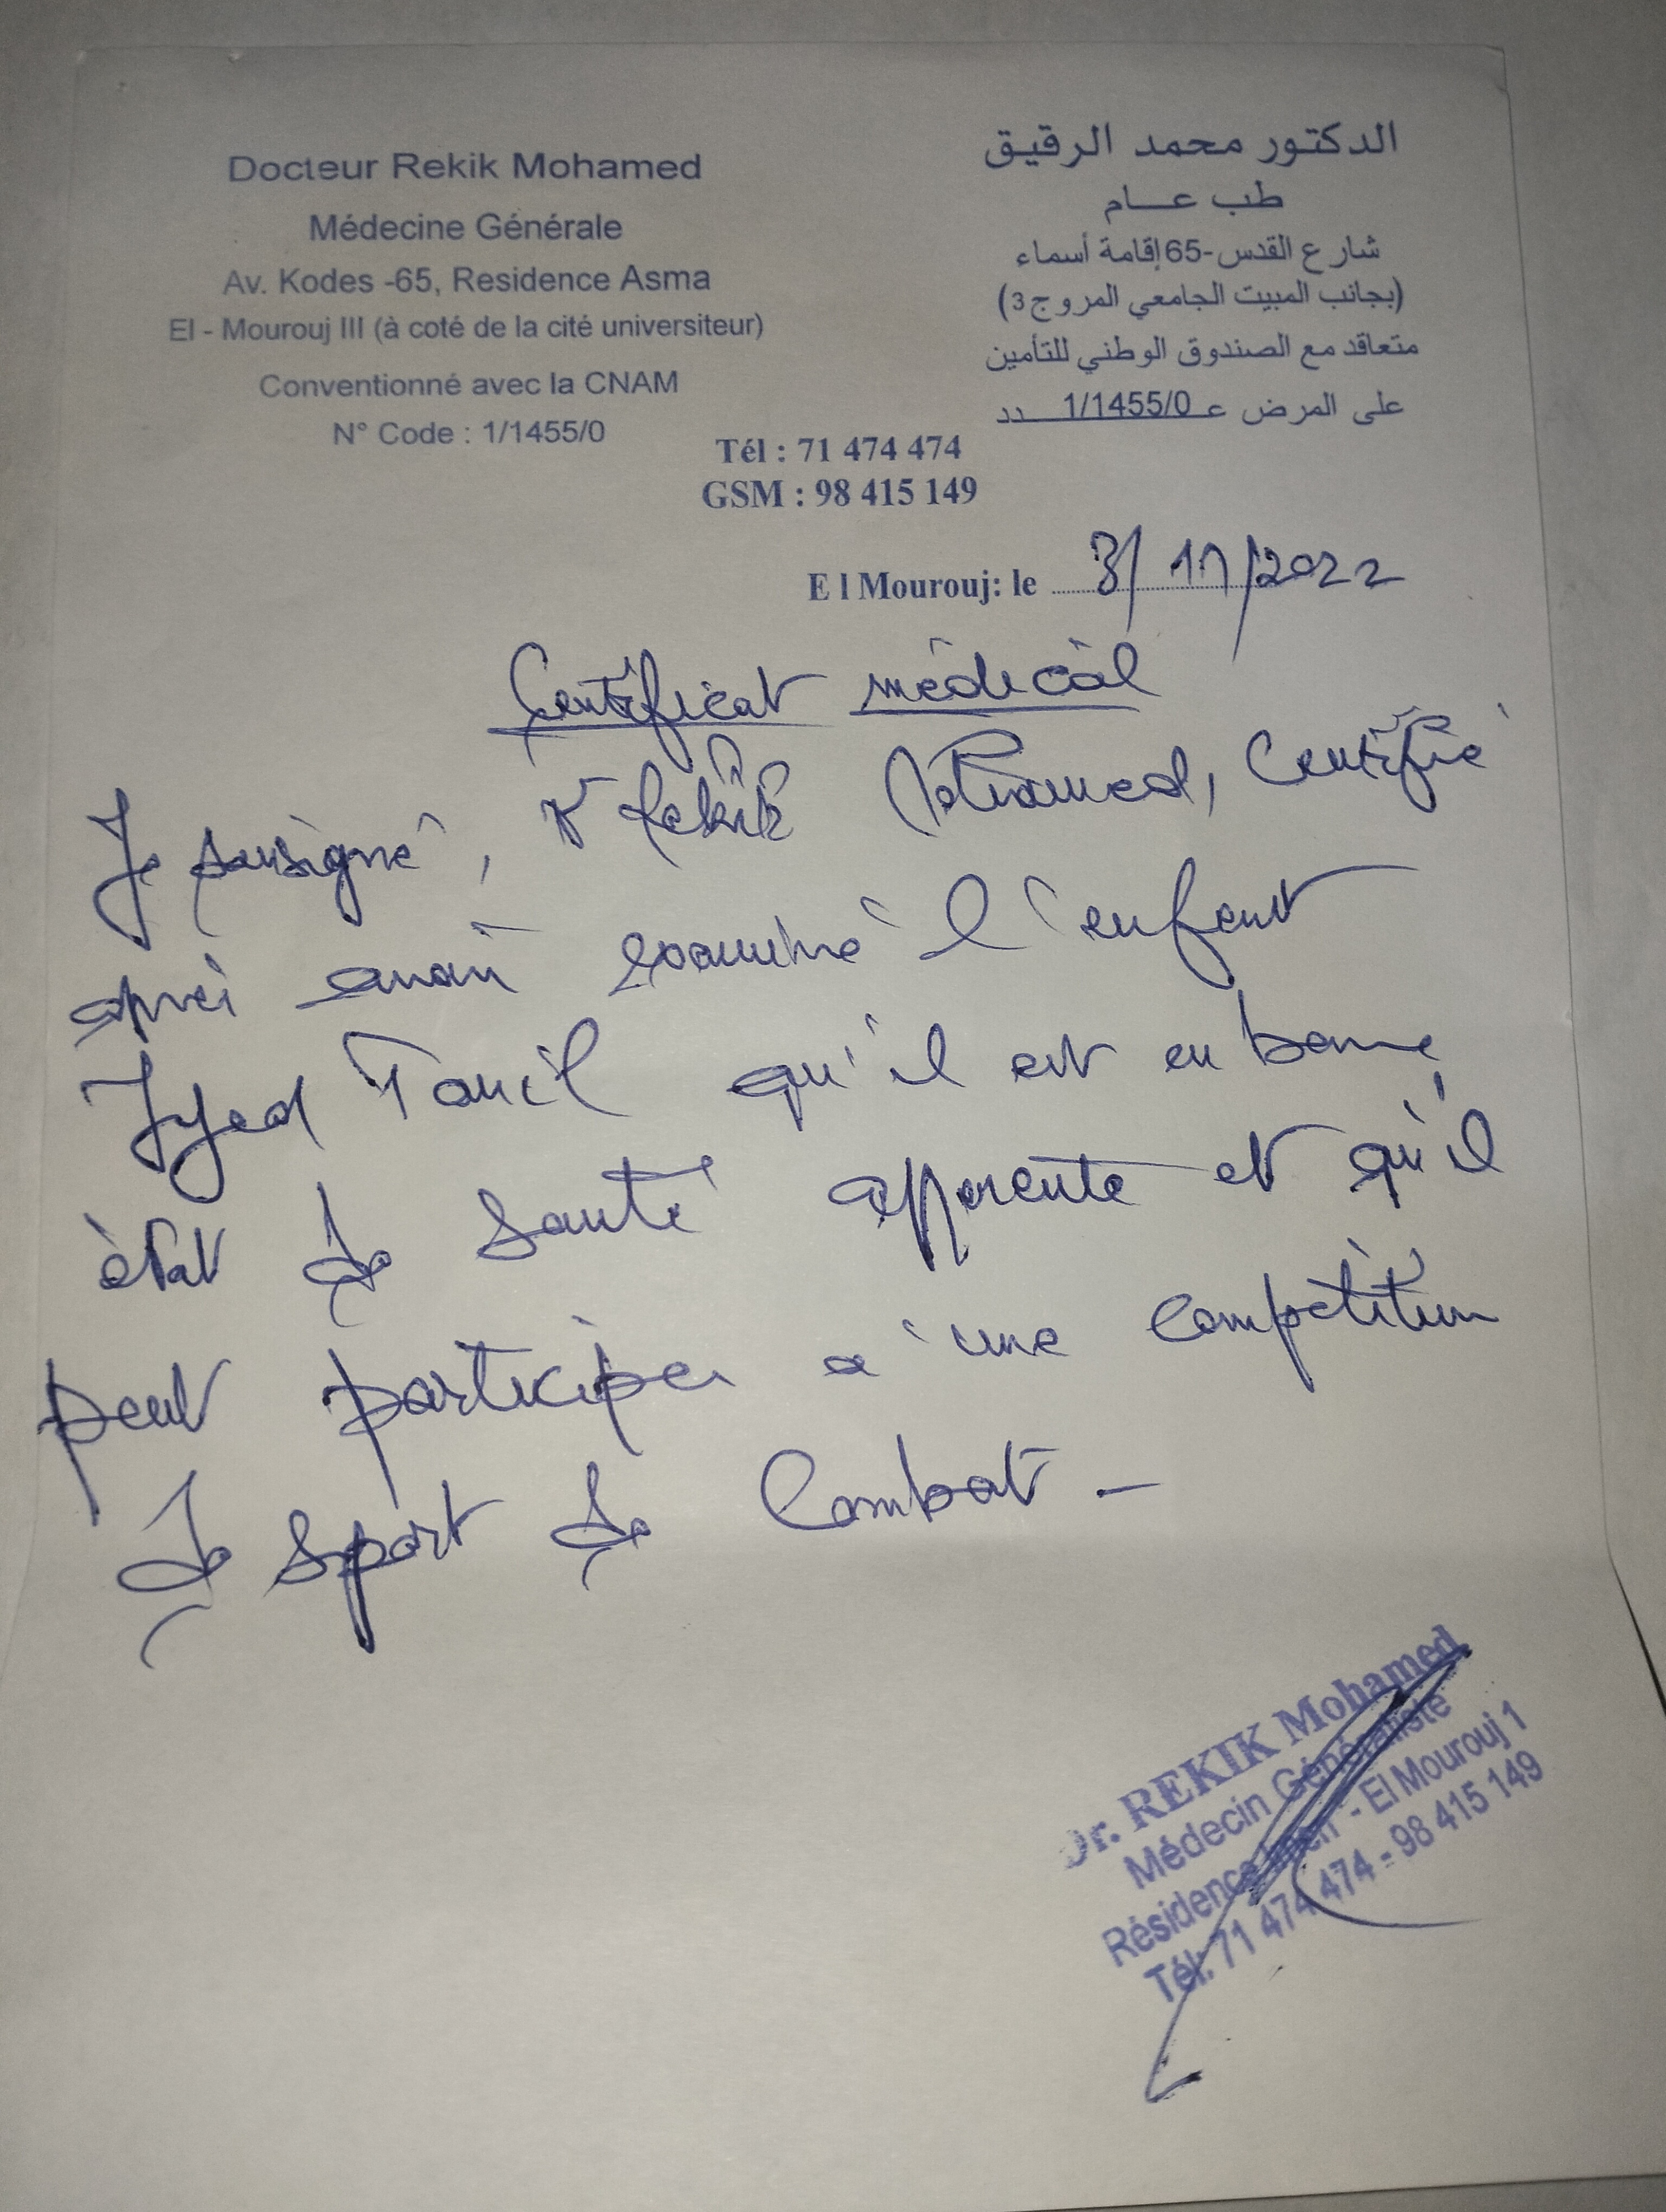 Docteur Rekik Mohamed
Médecine Générale
Av. Kodes -65, Residence Asma
El - Mourouj III (à coté de la cité universiteur)
Conventionné avec la CNAM
N° Code : 1/1455/0
الدكتور محمد الرقيق
طب عـــام
شارع القدس-65إقامة أسماء
(بجانب المبيت الجامعي المروج3)
متعاقد مع الصندوق الوطني للتأمين
على المرض عـ 1/1455/0 ـدد
Tél : 71 474 474
GSM : 98 415 149
E l Mourouj: le 3/11/2022
Certificat médical
Je sousigné, Dr Rekik Mohamed, Certifie
après avoir examiné l'enfant
Iyed qu'il est en bonne
état de santé apparente et qu'il
peut participer à une compétition
de sport de Combat -
Dr. REKIK Mohamed
Médecin Généraliste
Résidence - El Mourouj 1
Tél: 71 474 474 - 98 415 149